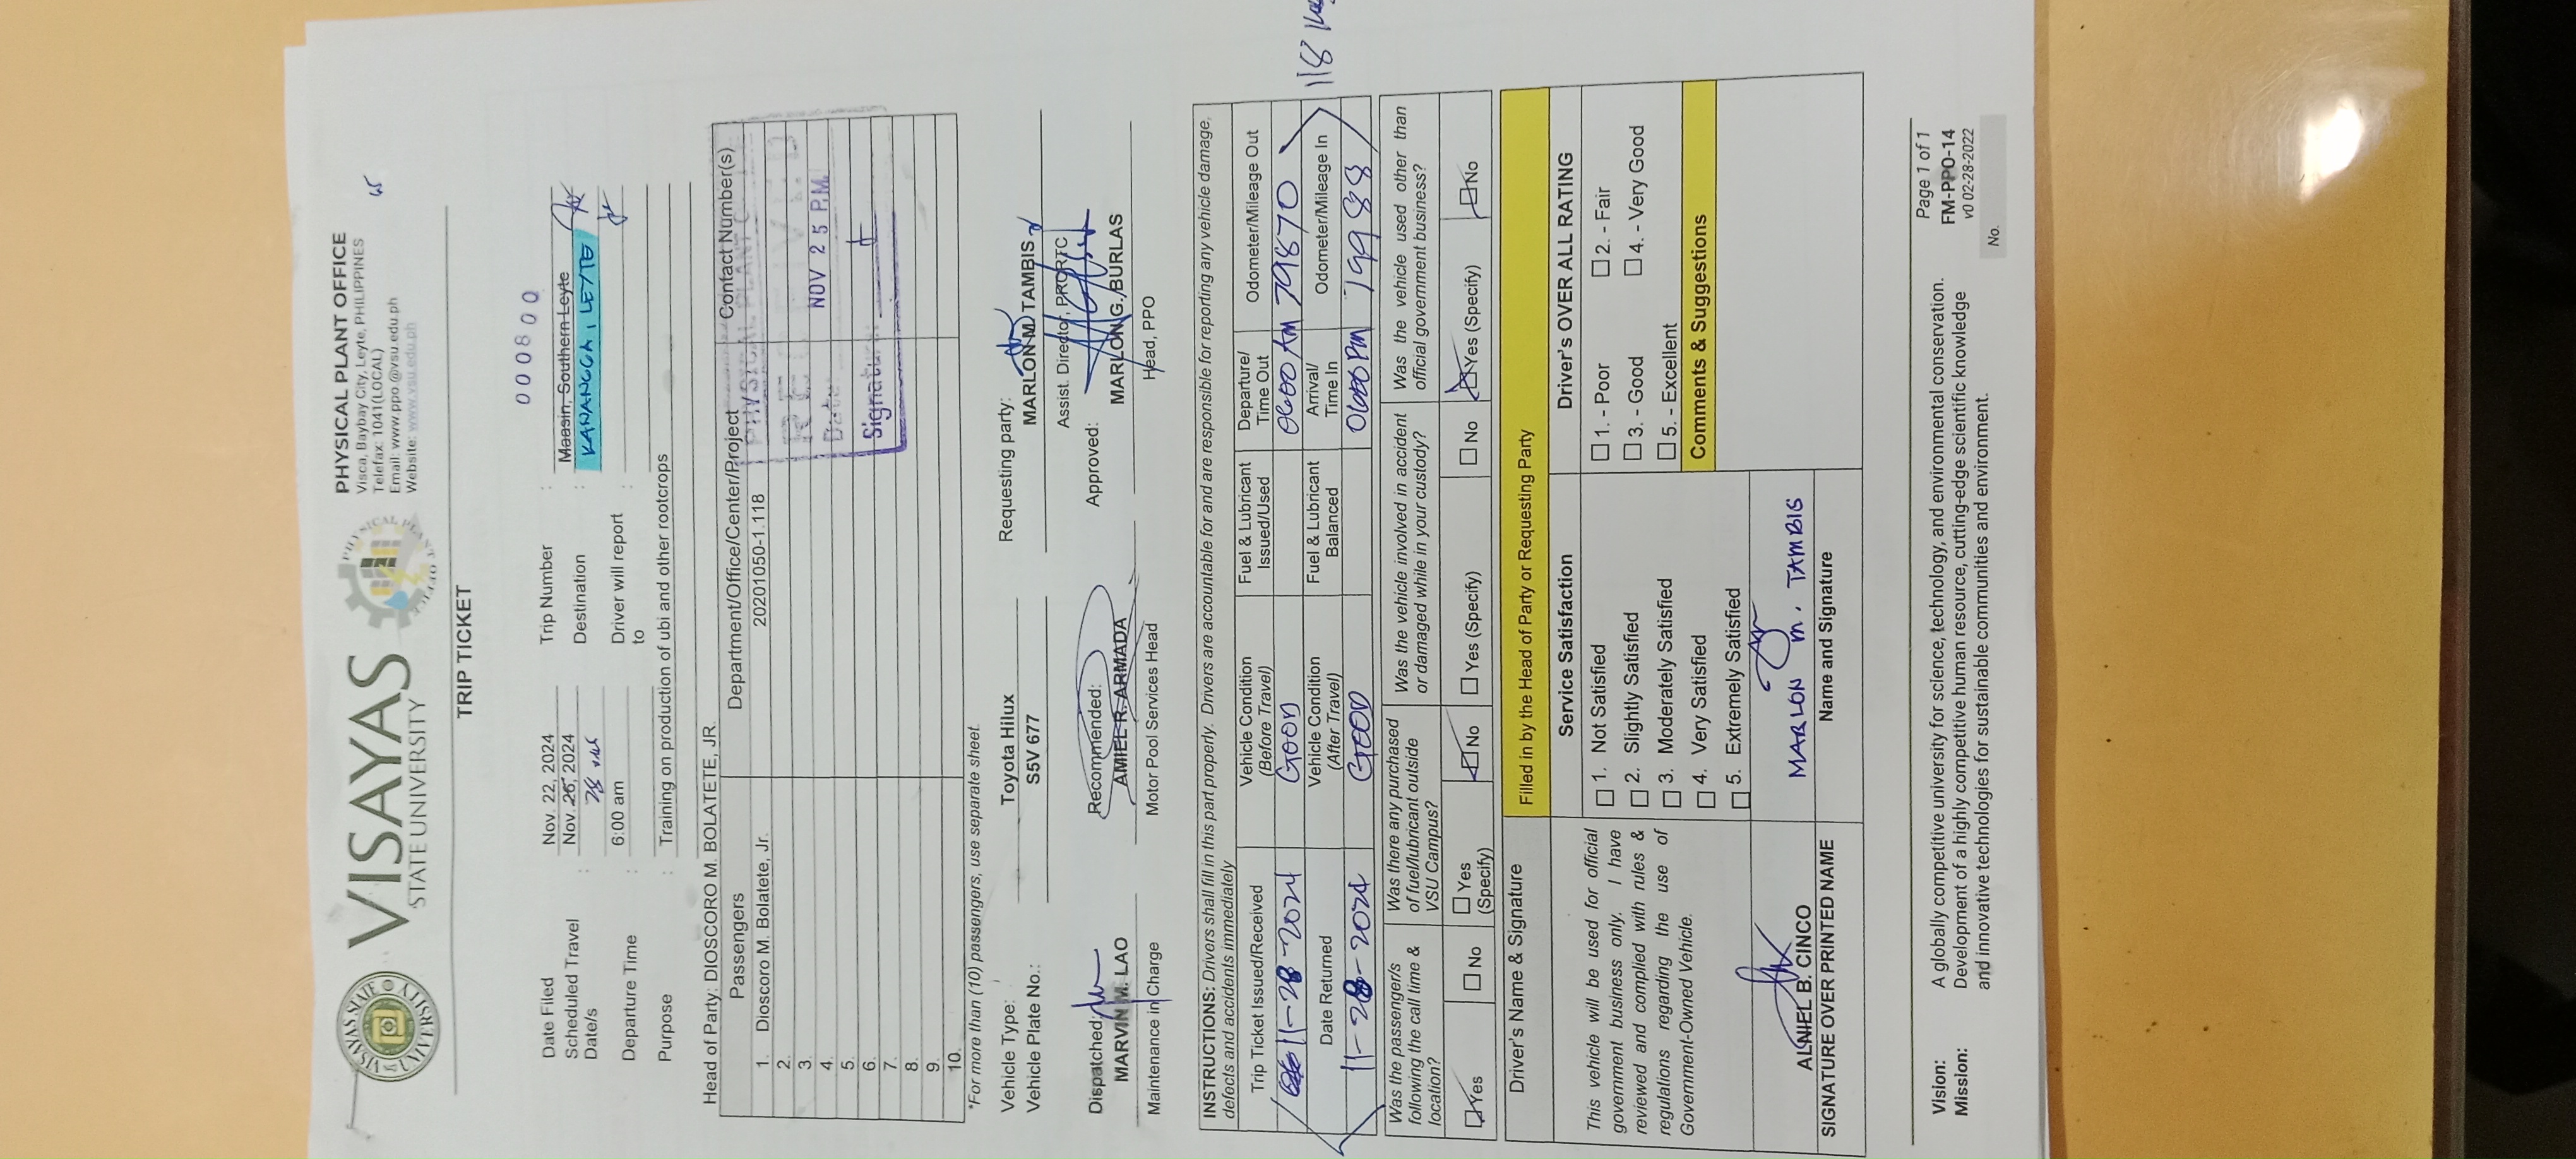 VISAYAS
STATE UNIVERSITY
PHYSICAL PLANT OFFICE
Visca, Baybay City, Leyte, PHILIPPINES
Telefax: 1041(LOCAL)
Email: www.ppo.@vsu.edu.ph
Website: www.vsu.edu.ph
TRIP TICKET
000800
Date Filed : Nov. 22, 2024
Scheduled Travel Date/s : Nov. 26, 2024
28
Departure Time : 6:00 am
Trip Number :
Destination : Maasin, Southern Leyte
KANANGGA, LEYTE
Driver will report to :
Purpose : Training on production of ubi and other rootcrops
Head of Party: DIOSCORO M. BOLATETE, JR.
Passengers Department/Office/Center/Project Contact Number(s)
1. Dioscoro M. Bolatete, Jr. 20201050-1.118
2.
3.
4.
5.
6.
7.
8.
9.
10.
PHYSICAL PLANT
RECEIVED
Date NOV 25 P.M.
Signature
*For more than (10) passengers, use separate sheet.
Vehicle Type: Toyota Hilux
Vehicle Plate No.: S5V 677
Requesting party:
MARLON M. TAMBIS
Assist. Director, PRCRTC
Dispatched:
MARVIN M. LAO
Maintenance in Charge
Recommended:
AMIEL R. ARMADA
Motor Pool Services Head
Approved:
MARLON G. BURLAS
Head, PPO
INSTRUCTIONS: Drivers shall fill in this part properly. Drivers are accountable for and are responsible for reporting any vehicle damage,
defects and accidents immediately
Trip Ticket Issued/Received Vehicle Condition (Before Travel) Fuel & Lubricant Issued/Used Departure/ Time Out Odometer/Mileage Out
11-28-2024 GOOD 0600 AM 79870
Date Returned Vehicle Condition (After Travel) Fuel & Lubricant Balanced Arrival/ Time In Odometer/Mileage In
11-28-2024 GOOD 0600 PM 79988
118
Was the passenger/s following the call time & location?
Was there any purchased of fuel/lubricant outside VSU Campus?
Was the vehicle involved in accident or damaged while in your custody?
Was the vehicle used other than official government business?
Yes No
Yes (Specify) No
Yes (Specify) No
Yes (Specify) No
Driver's Name & Signature
Filled in by the Head of Party or Requesting Party
This vehicle will be used for official
government business only. I have
reviewed and complied with rules &
regulations regarding the use of
Government-Owned Vehicle.
Service Satisfaction
1. Not Satisfied
2. Slightly Satisfied
3. Moderately Satisfied
4. Very Satisfied
5. Extremely Satisfied
Driver's OVER ALL RATING
1. - Poor 2. - Fair
3. - Good 4. - Very Good
5. - Excellent
Comments & Suggestions
ALNIEL B. CINCO
SIGNATURE OVER PRINTED NAME
MARLON M. TAMBIS
Name and Signature
Vision: A globally competitive university for science, technology, and environmental conservation.
Mission: Development of a highly competitive human resource, cutting-edge scientific knowledge
and innovative technologies for sustainable communities and environment.
Page 1 of 1
FM-PPO-14
v0 02-28-2022
No.